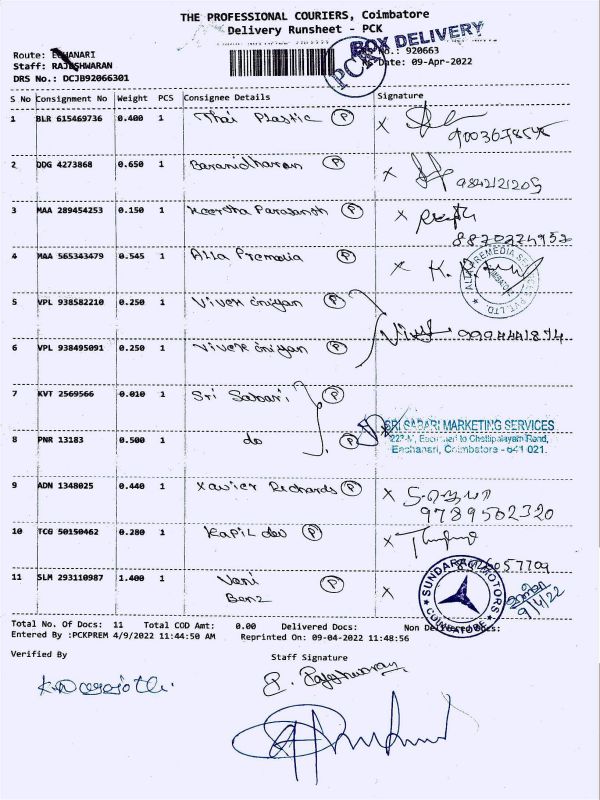 THE PROFESSIONAL COURIERS, Coimbatore
Delivery Runsheet - PCK
BOX DELIVERY
PCK
Route: EHANARI
Staff: RAJESHWARAN
DRS No.: DCJB92066301
No.: 920663
Date: 09-Apr-2022
S No Consignment No Weight PCS Consignee Details Signature
1 BLR 615469736 0.400 1 Thai Plastic P X
2 DDG 4273868 0.650 1 Baranidharan P X 9842121205
3 MAA 289454253 0.150 1 P X
8870224952
4 MAA 565343479 0.545 1 Alla Premedia P X
5 VPL 938582210 0.250 1 Vivek iniyan P
9994441874
6 VPL 938495091 0.250 1 Vivek iniyan P
7 KVT 2569566 0.010 1 Sri Sabari P
SRI SABARI MARKETING SERVICES
8 PNR 13183 0.500 1 do P
Eachanari, Coimbatore - 641 021.
9 ADN 1348025 0.440 1 Xavier Richards P X
9789502320
10 TCG 50150462 0.280 1 Kapil dev P X
11 SLM 293110987 1.400 1 Vani P X
Benz
SUNDARAM MOTORS
COIMBATORE
9/4/22
Total No. Of Docs: 11 Total COD Amt: 0.00 Delivered Docs: Non Delivered Docs:
Entered By :PCKPREM 4/9/2022 11:44:50 AM Reprinted On: 09-04-2022 11:48:56
Verified By Staff Signature
P. Rajeshwaran